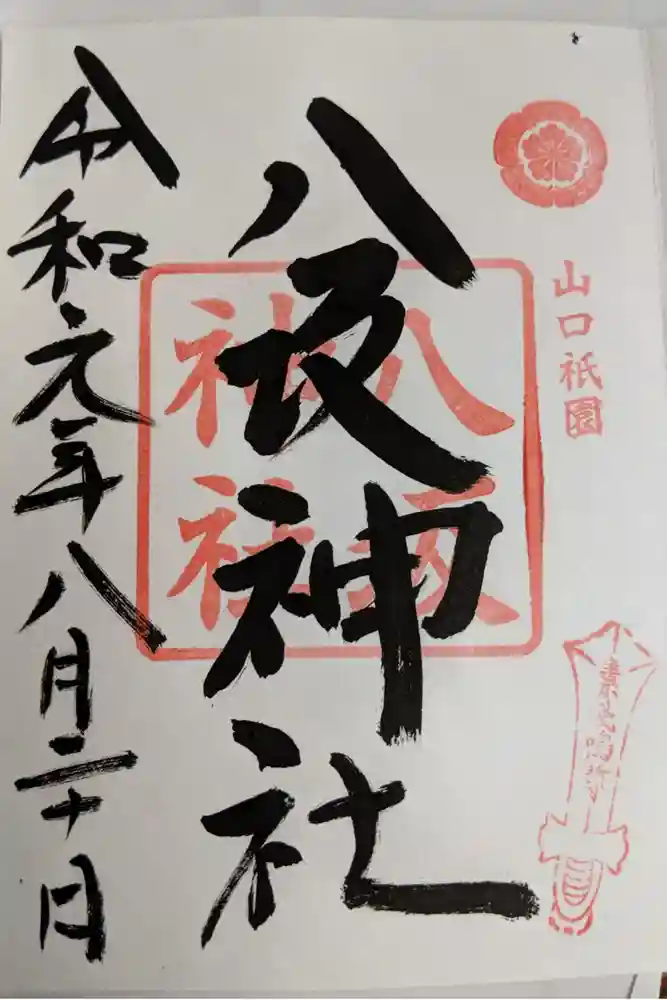 山口祇園
素戔嗚尊
八坂神社
八坂神社
令和元年八月二十日